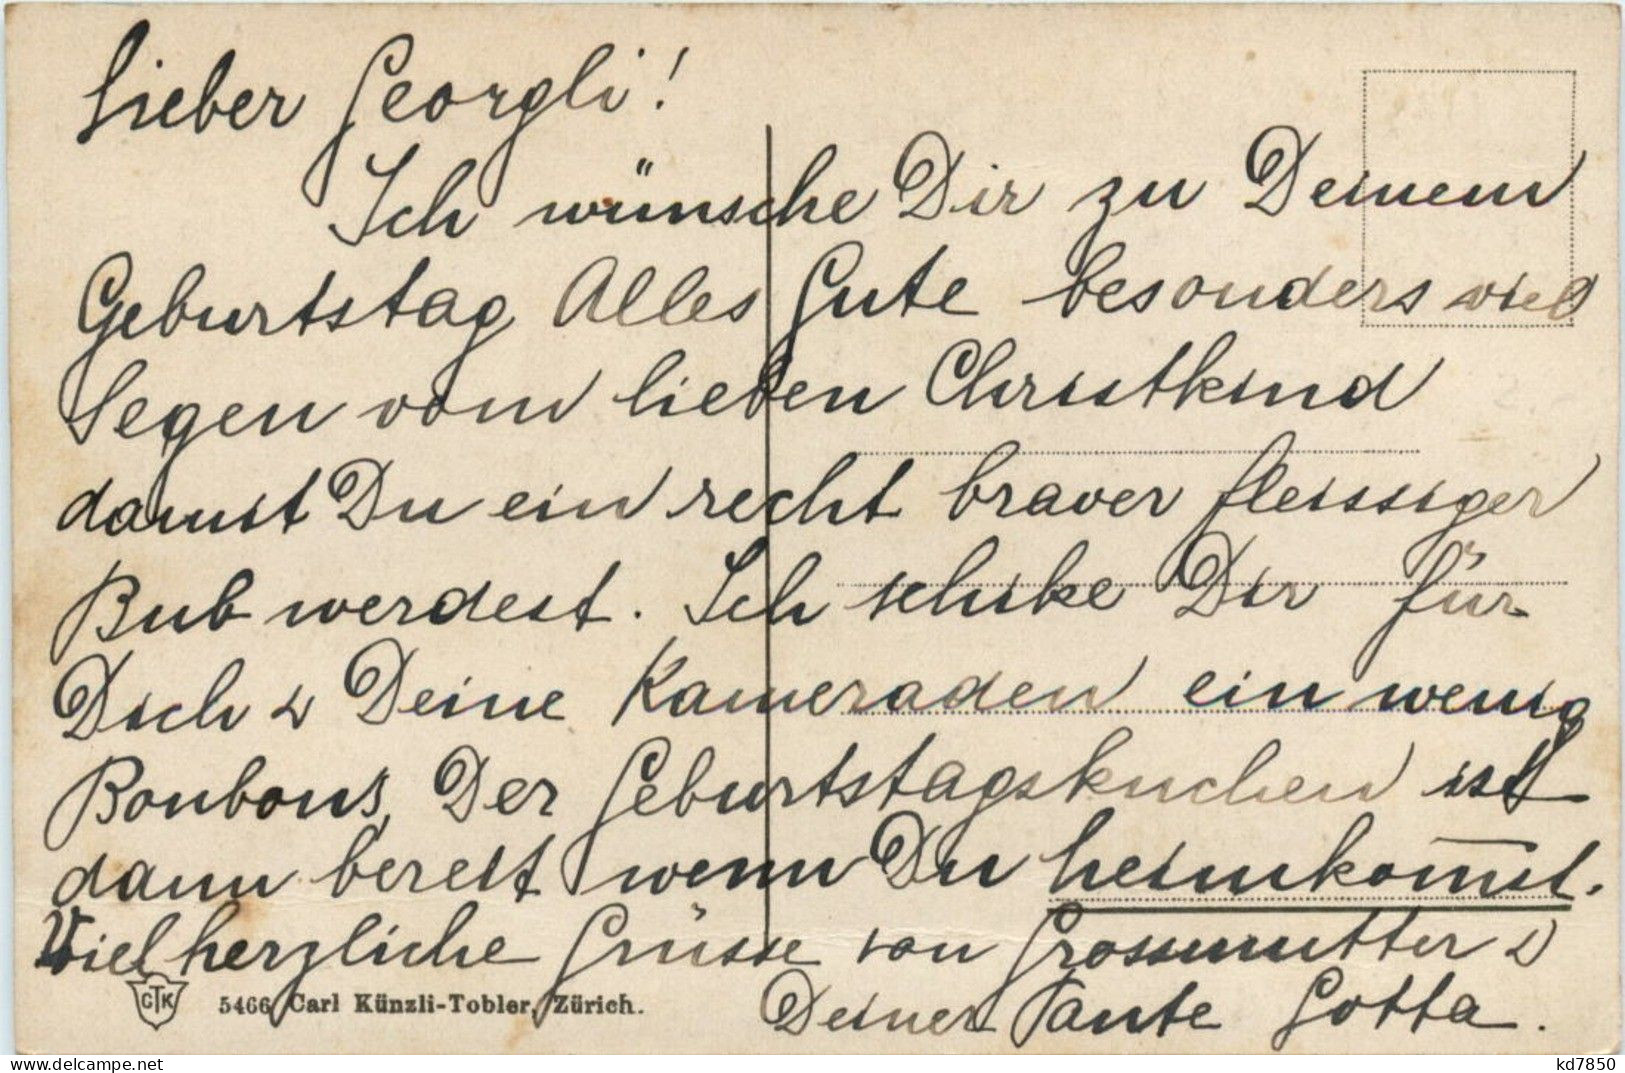 Lieber Georgli!
Ich wünsche Dir zu Deinem
Geburtstag Alles Gute besonders viel
Segen vom lieben Christkind
damit Du ein recht braver fleissiger
Bub werdest. Ich schike Dir für
Dich & Deine Kameraden ein wenig
Bonbons, Der Geburtstagskuchen ist
dann bereit wenn Du heimkom̅st.
Viel herzliche Grüsse von Grossmutter &
Deiner Tante Gotta.
CTK 5466 Carl Künzli-Tobler, Zürich.
kd7850